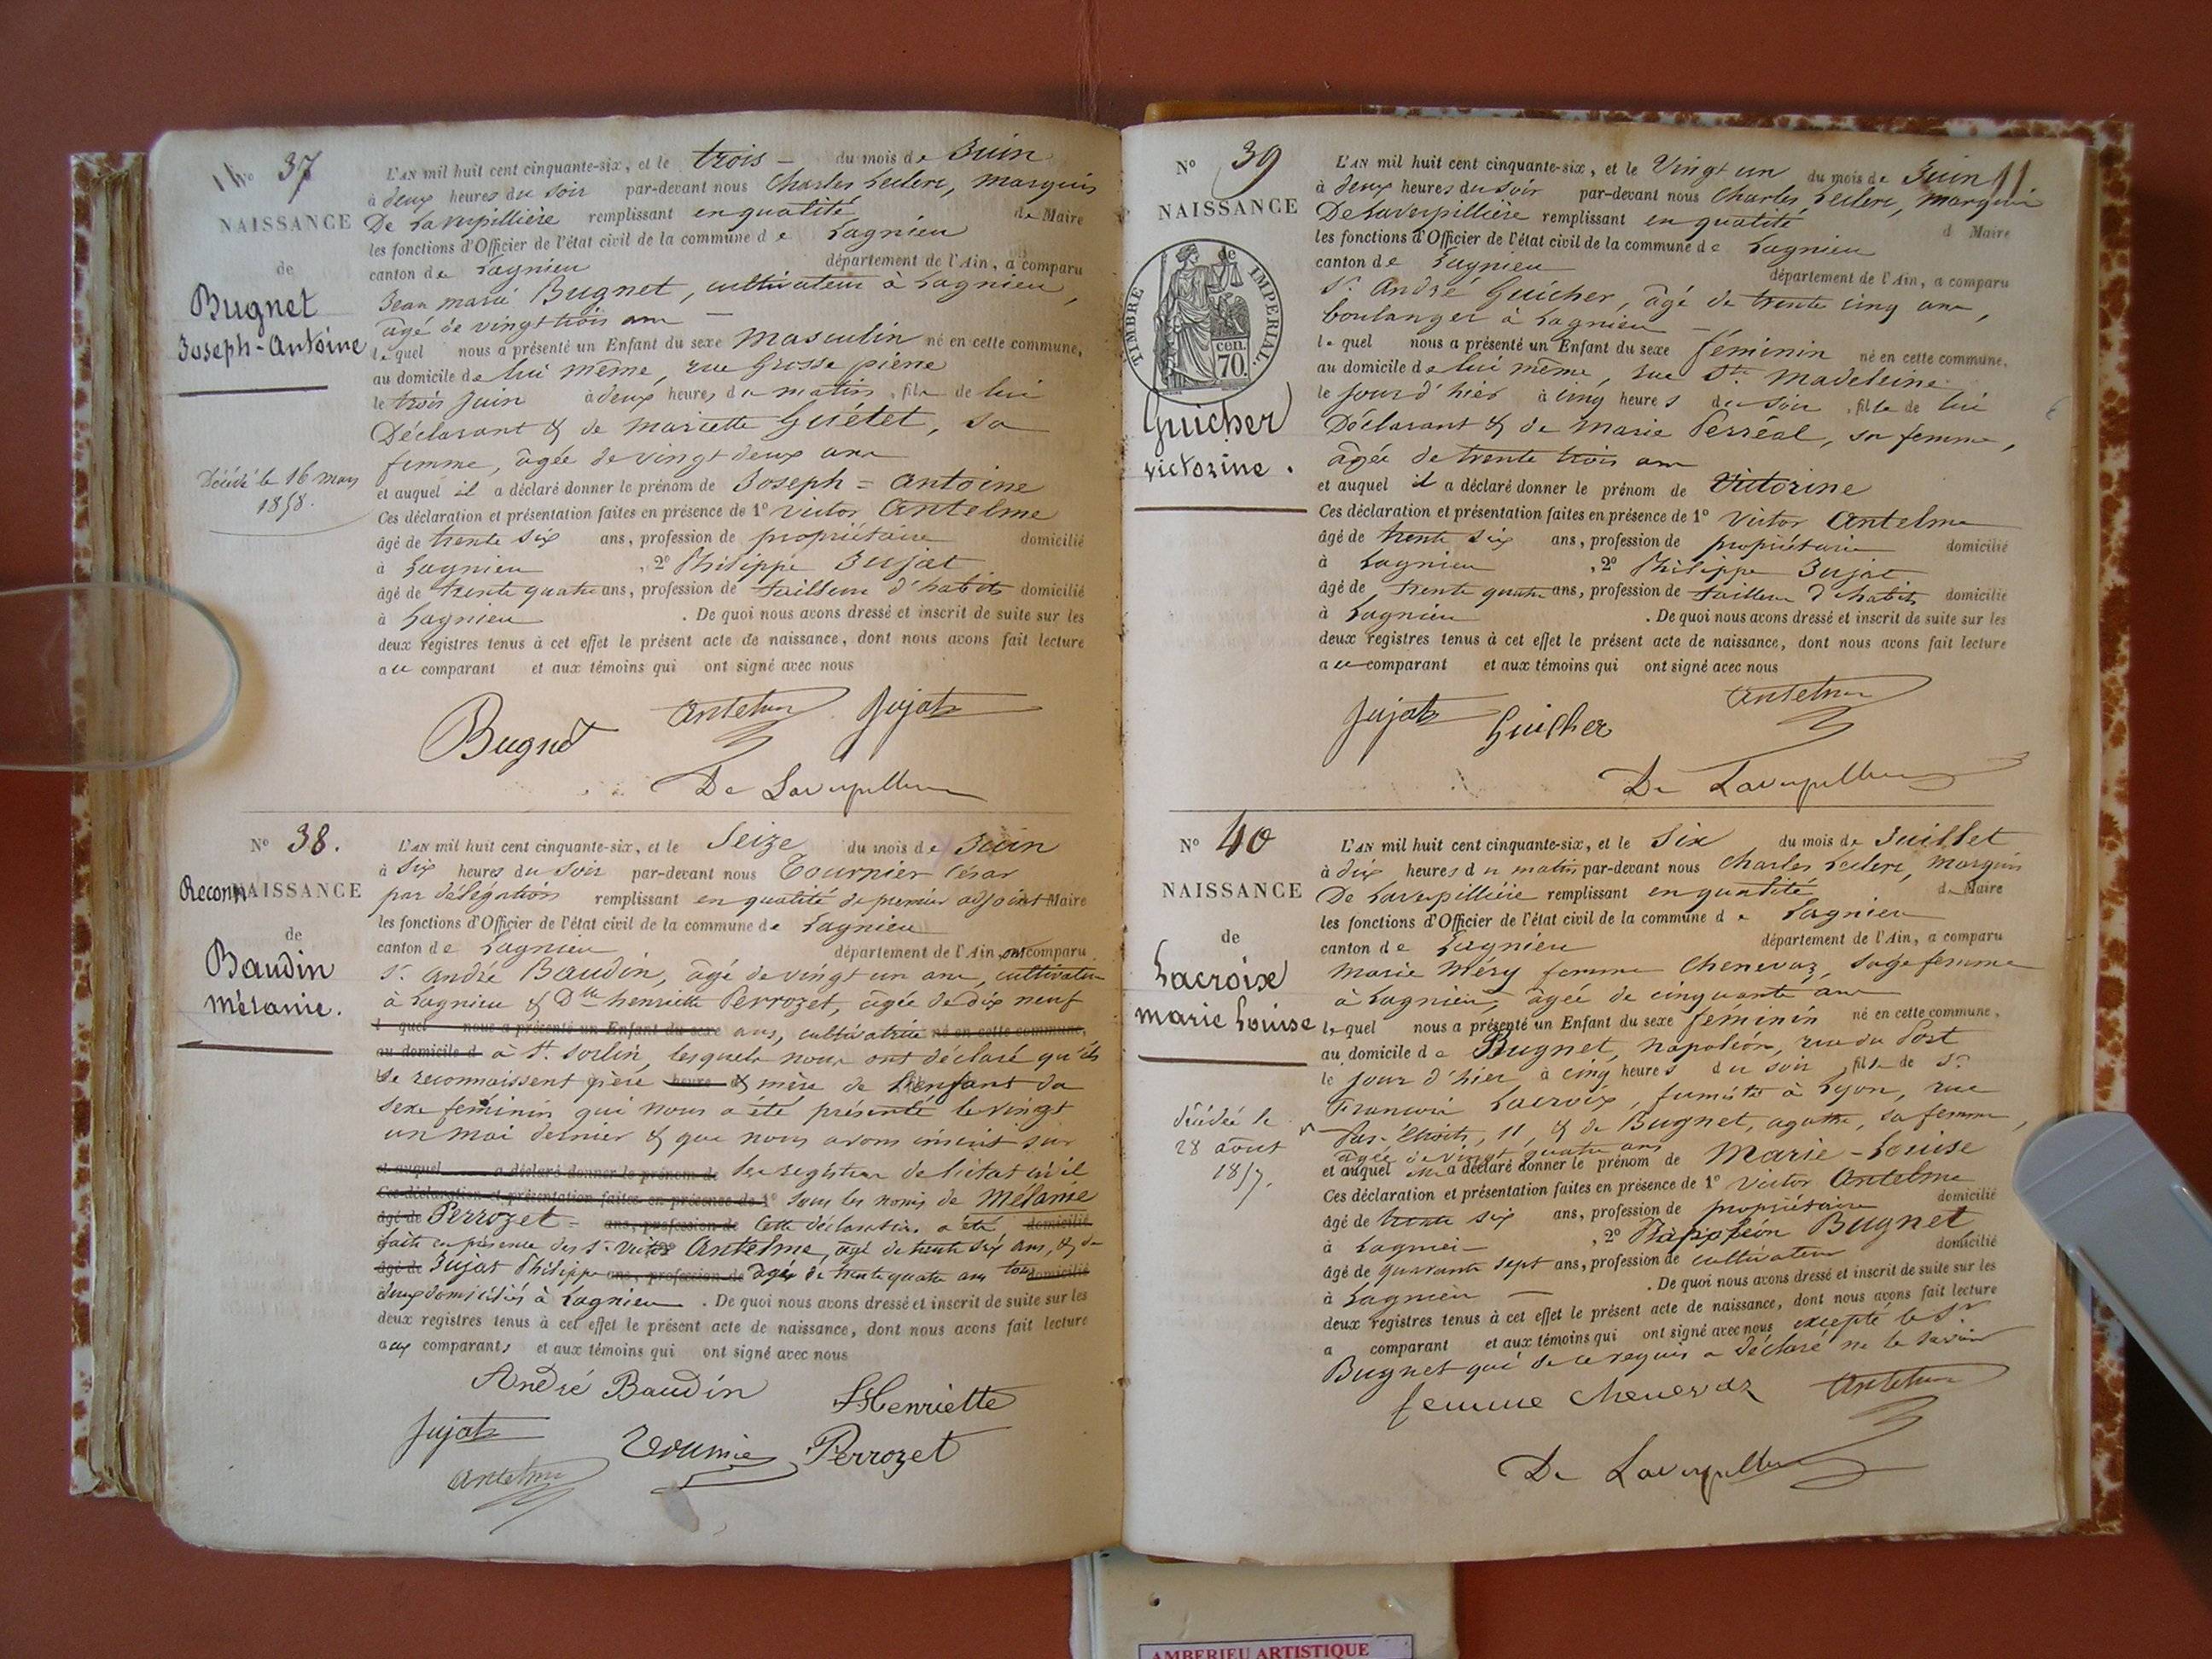 No 37
NAISSANCE
de
Bugnet
Joseph-Antoine
Décédé le 16 mars
1858.
L'AN mil huit cent cinquante-six, et le trois du mois de Juin
à deux heures du soir par-devant nous Charles Leclerc, Marquis
De Laverpillière remplissant en qualité de Maire
les fonctions d'Officier de l'état civil de la commune de Lagnieu
canton de Lagnieu département de l'Ain, a comparu
Jean marie Bugnet, cultivateur à Lagnieu,
âgé de vingt trois ans
lequel nous a présenté un Enfant du sexe masculin né en cette commune,
au domicile de lui même, rue Grosse pierre
le trois Juin à deux heures du matin, fils de lui
Déclarant & de mariette Guétet, sa
femme, âgée de vingt deux ans
et auquel il a déclaré donner le prénom de Joseph = Antoine
Ces déclaration et présentation faites en présence de 1º Victor Antelme
âgé de trente six ans, profession de propriétaire domicilié
à Lagnieu, 2º Philippe Jujat
âgé de trente quatre ans, profession de tailleur d'habits domicilié
à Lagnieu. De quoi nous avons dressé et inscrit de suite sur les
deux registres tenus à cet effet le présent acte de naissance, dont nous avons fait lecture
au comparant et aux témoins qui ont signé avec nous
Antelme Jujat
Bugnet
De Laverpillière
No 38.
Reconn
NAISSANCE
de
Baudin
Mélanie.
L'AN mil huit cent cinquante-six, et le Seize du mois de Juin
à six heures du soir par-devant nous Tournier César
par délégation remplissant en qualité de premier adjoint Maire
les fonctions d'Officier de l'état civil de la commune de Lagnieu
canton de Lagnieu département de l'Ain, ont comparu
Sr André Baudin, âgé de vingt un ans, cultivateur
à Lagnieu & Dlle henriette Perrozet, âgée de dix neuf
l quel nous a présenté un Enfant du sexe ans, cultivatrice né en cette commune,
au domicile d à St. Sorlin, lesquels nous ont déclaré qu'ils
se reconnaissent père heure & mère de l'enfant du
sexe féminin qui nous a été présenté le vingt
un mai dernier & que nous avons inscrit sur
et auquel a déclaré donner le prénom de les registres de l'état civil
Ces déclaration et présentation faites en présence de 1º sous les noms de Mélanie
âgé de Perrozet = ans, profession de Cette déclaration a été domicilié
faite en présence des Sr Victor Antelme, âgé de trente six ans, & de
âgé de Jujat Philippe ans, profession de âgé de trente quatre ans tous domicilié
deux domiciliés à Lagnieu. De quoi nous avons dressé et inscrit de suite sur les
deux registres tenus à cet effet le présent acte de naissance, dont nous avons fait lecture
aux comparants et aux témoins qui ont signé avec nous
André Baudin Henriette
Jujat Tournier Perrozet
Antelme
No 39
NAISSANCE
de
TIMBRE IMPERIAL.
70. cen.
Guicher
victorine.
11.
L'AN mil huit cent cinquante-six, et le Vingt un du mois de Juin
à deux heures du soir par-devant nous Charles Leclerc, marquis
De Laverpillière remplissant en qualité d Maire
les fonctions d'Officier de l'état civil de la commune de Lagnieu
canton de Lagnieu département de l'Ain, a comparu
Sr André Guicher, âgé de trente cinq ans,
boulanger à Lagnieu
lequel nous a présenté un Enfant du sexe féminin né en cette commune,
au domicile de lui même, rue Ste Madeleine
le jour d'hier à cinq heures du soir, fille de lui
Déclarant & de Marie Perréal, sa femme,
âgée de trente trois ans
et auquel il a déclaré donner le prénom de Victorine
Ces déclaration et présentation faites en présence de 1º Victor Antelme
âgé de trente six ans, profession de propriétaire domicilié
à Lagnieu, 2º Philippe Jujat
âgé de trente quatre ans, profession de tailleur d'habits domicilié
à Lagnieu. De quoi nous avons dressé et inscrit de suite sur les
deux registres tenus à cet effet le présent acte de naissance, dont nous avons fait lecture
au comparant et aux témoins qui ont signé avec nous
Antelme
Jujat Guicher
De Laverpillière
No 40
NAISSANCE
de
Lacroix
marie Louise
décédée le
28 août
1857.
L'AN mil huit cent cinquante-six, et le Six du mois de Juillet
à dix heures du matin par-devant nous Charles Leclerc, marquis
De Laverpillière remplissant en qualité de Maire
les fonctions d'Officier de l'état civil de la commune de Lagnieu
canton de Lagnieu département de l'Ain, a comparu
Marie Méry femme Chenevaz, sage femme
à Lagnieu, âgée de cinquante ans
lequel nous a présenté un Enfant du sexe féminin né en cette commune,
au domicile de Bugnet, napoléon, rue du Port
le jour d'hier à cinq heures du soir, fille de Sr
François Lacroix, fumiste à Lyon, rue
Pas-Etroits, 11, & de Bugnet, agathe, sa femme,
âgée de vingt quatre ans
et auquel elle a déclaré donner le prénom de Marie-Louise
Ces déclaration et présentation faites en présence de 1º Victor Antelme
âgé de trente six ans, profession de propriétaire domicilié
à Lagnieu, 2º Napoléon Bugnet
âgé de quarante sept ans, profession de cultivateur domicilié
à Lagnieu. De quoi nous avons dressé et inscrit de suite sur les
deux registres tenus à cet effet le présent acte de naissance, dont nous avons fait lecture
a comparant et aux témoins qui ont signé avec nous excepté le Sr
Bugnet qui de ce requis a déclaré ne le savoir
femme Chenevaz Antelme
De Laverpillière
AMBERIEU ARTISTIQUE